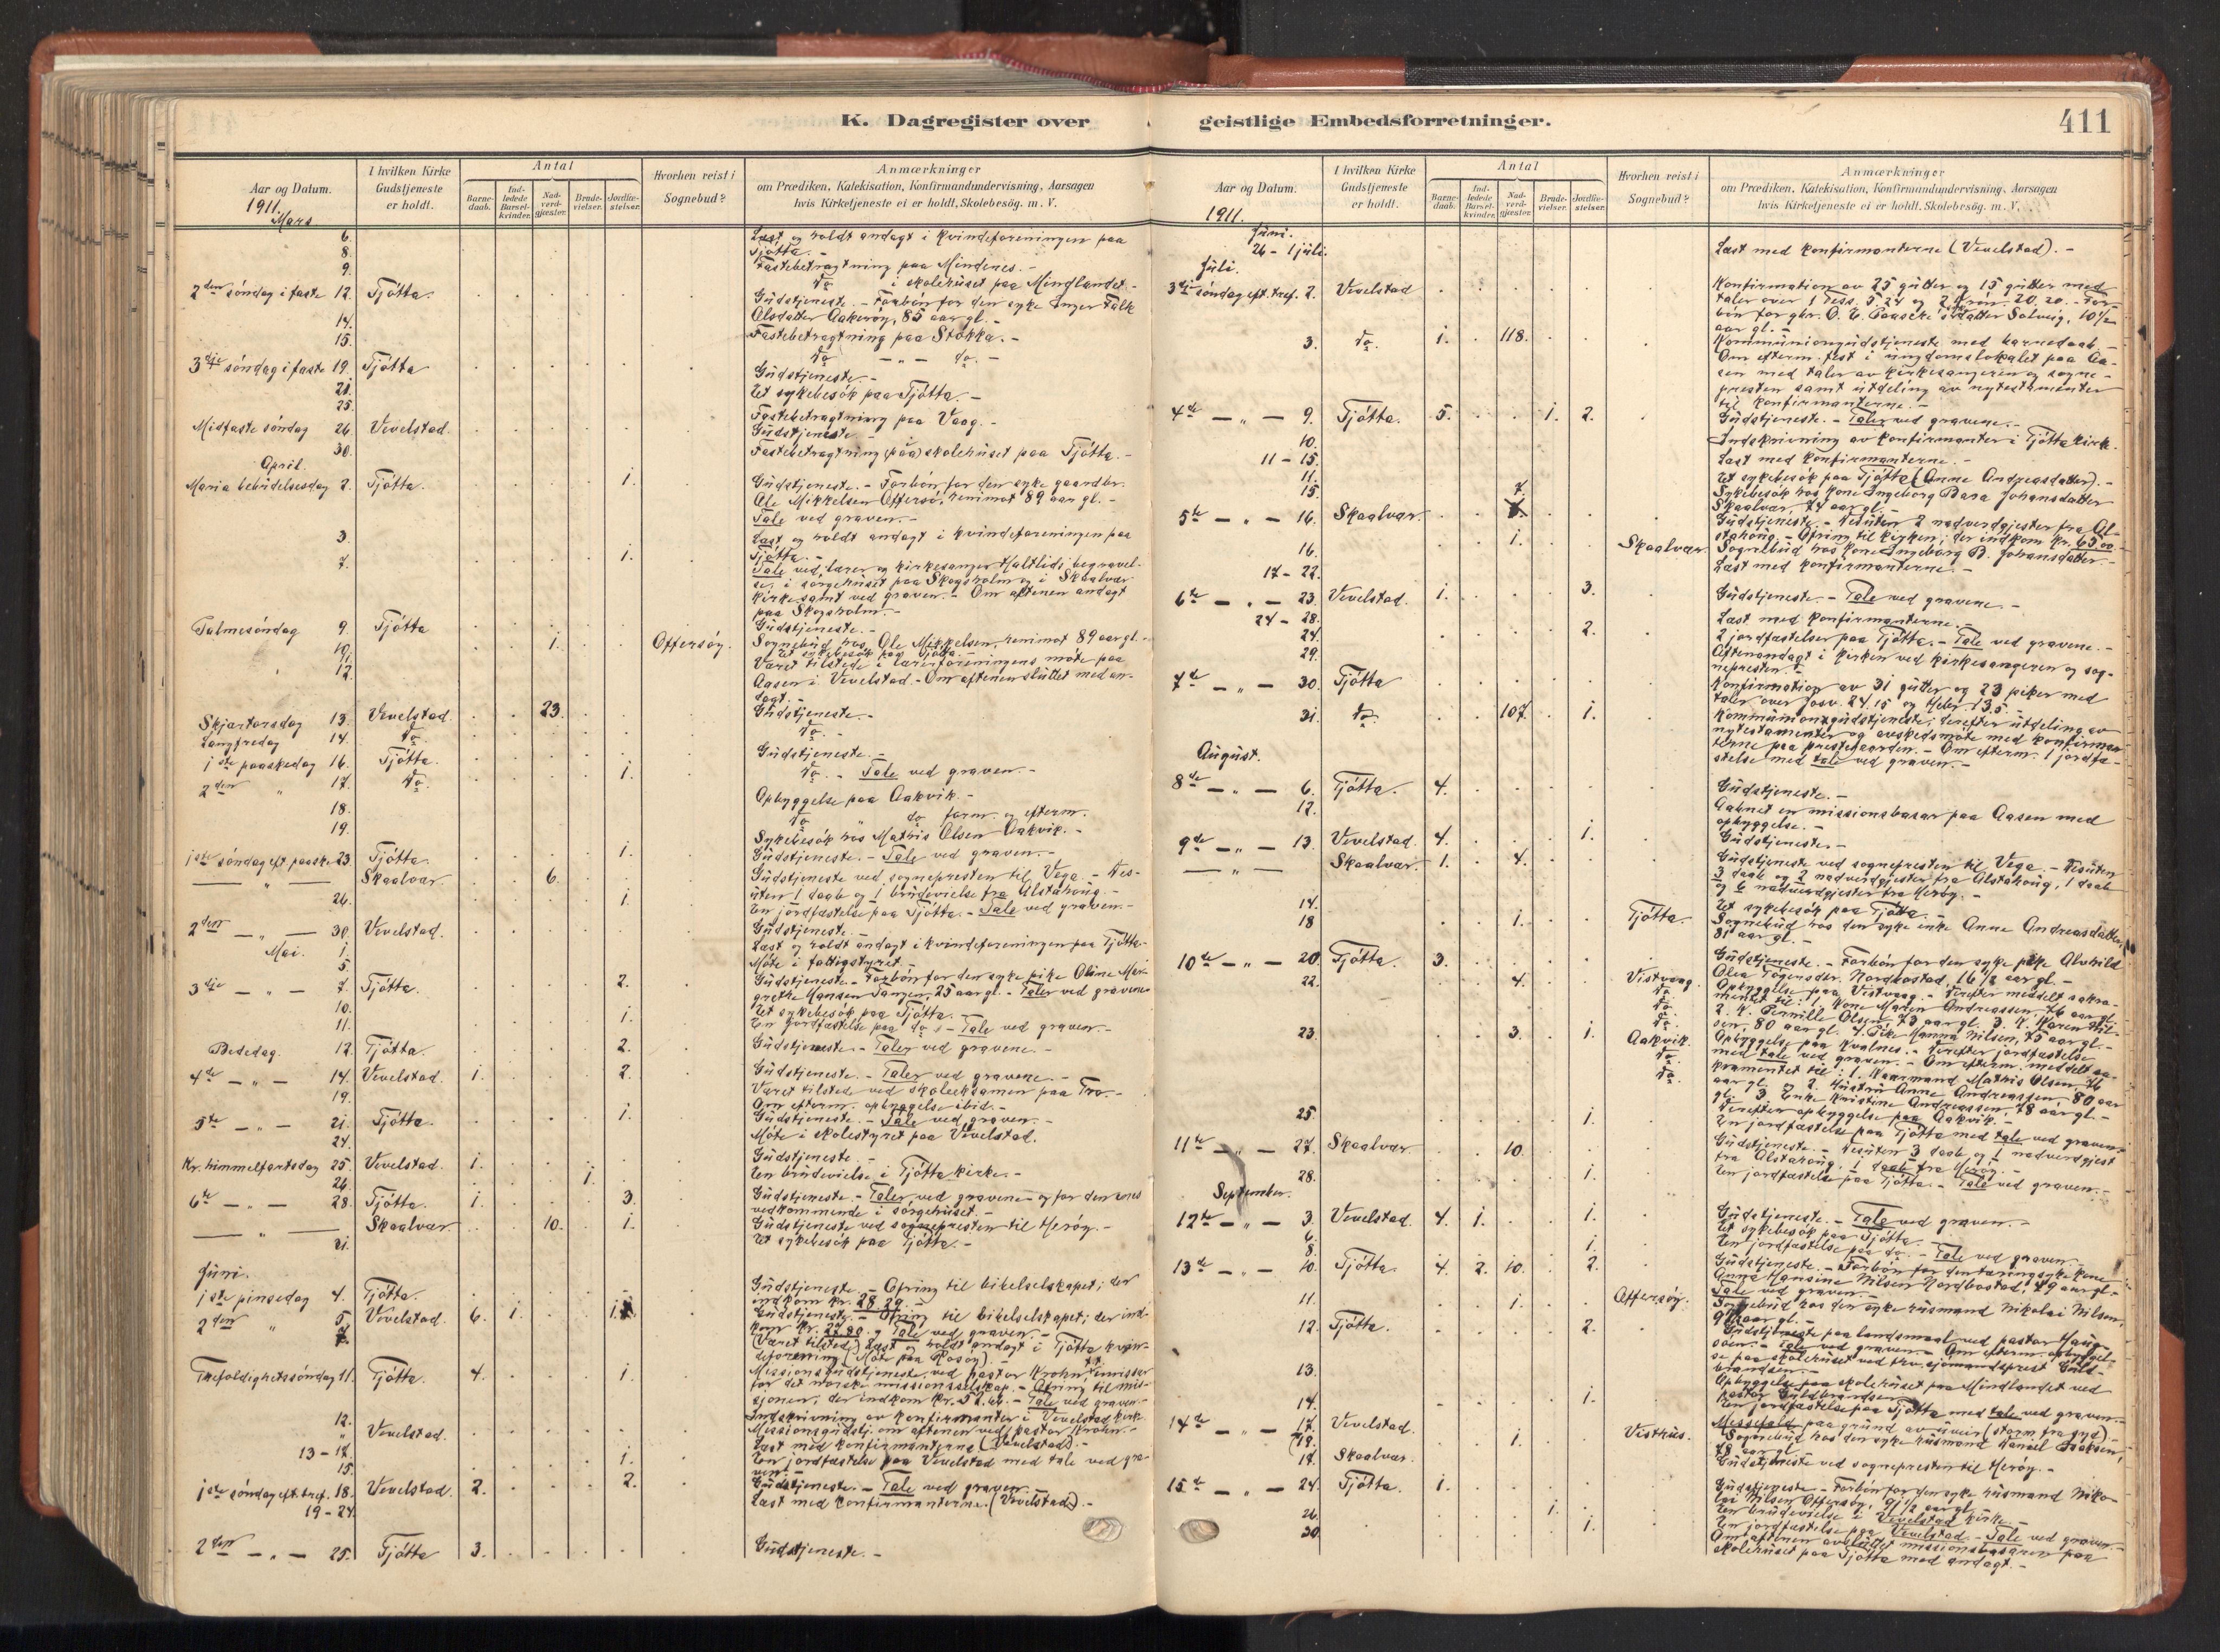 K. Dagregister over
Aar og Datum.
I hvilken Kirke Gudstjeneste er holdt.
Antal
Barnedaab.
Indledede Barselkvinder.
Nadverdgjester.
Brudevielser.
Jordfæstelser.
Hvorhen reist i Sognebud?
Anmærkninger
om Prædiken, Katekisation, Konfirmandundervisning, Aarsagen
hvis Kirketjeneste ei er holdt, Skolebesøg. m. V.
1911.
Mars
6. Læst og holdt andagt i kvindeforeningen paa
8. Tjøtta. -
9. Fastebetragtning paa Mindenes. -
do i skolehuset paa Mindlandet -
2den søndag i faste 12. Tjøtta. Gudstjeneste. - Forbøn for den syke Inger Falk
Olsdatter Aakerøy, 85 aar gl. -
14. Fastebetragtning paa Stokka. -
15. do - „ - do. -
3dje søndag i faste 19. Tjøtta Gudstjeneste. -
21. Et sykebesøk paa Tjøtta. -
25. Fastebetragtning paa Vaag. -
Midfaste søndag 26. Vevelstad. Gudstjeneste. -
30. Fastebetragtning (paa) skolehuset paa Tjøtta. -
April.
Maria bebudelsesdag 2. Tjøtta. 1. Gudstjeneste. - Forbøn for den syke gaardbr.
Ole Mikkelsen Offersø, henimot 89 aar gl. -
Tale ved graven. -
3. Læst og holdt andagt i kvindeforeningen paa
Tjøtta. -
7. 1. Tale ved lærer og kirkesanger Haltlids begravel-
se, i sørgehuset paa Skogsholm og i Skaalvær
kirke samt ved graven. - Om aftenen andagt
paa Skogsholm. -
Palmesøndag 9. Tjøtta Gudstjeneste. -
10. 1. Offersøy. Sognebud hos Ole Mikkelsen, henimot 89 aar gl. -
11. Et sykebesøk paa Tjøtta. -
12. Været tilstede i lærerforeningens møte paa
Aasen i Vevelstad. - Om aftenen sluttet med an-
dagt. -
Skjærtorsdag 13. Vevelstad. 23. Gudstjeneste. -
Langfredag 14. do. do. -
1ste paaskedag 16. Tjøtta. Gudstjeneste. -
2den „ 17. do. 1. do. - Tale ved graven. -
18. Opbyggelse paa Aakvik. -
19. do „ do form. og efterm.
Sykebesøk hos Mathis Olsen Aakvik. -
1ste søndag eft. paaske 23. Tjøtta. 1. Gudstjeneste. - Tale ved graven. -
— „ — Skaalvær. 6. Gudstjeneste ved sognepresten til Vega. - Des-
uten 1 daab og 1 brudevielse fra Alstahoug. -
26. 1. En jordfæstelse paa Tjøtta. - Tale ved graven. -
2den — „ — 30. Vevelstad. Gudstjeneste. -
Mai. 1. Læst og holdt andagt i kvindeforeningen paa Tjøtta. -
5. Møte i fattigstyret. -
3dje — „ — 7. Tjøtta. 2. Gudstjeneste. - Forbøn for den syke pike Oline Mar-
grethe Hansen Tangen, 25 aar gl. - Taler ved gravene.
10. Et sykebesøk paa Tjøtta. -
11. 1. En jordfæstelse paa do. - Tale ved graven. -
Bededag. 12. Tjøtta. 2. Gudstjeneste. - Taler ved gravene. -
4de — „ — 14. Vevelstad. 1. 2. Gudstjeneste. - Taler ved gravene. -
19. Været tilsted ved skoleeksamen paa Tro. -
Om efterm. opbyggelse ibid. -
5te — „ — 21. Tjøtta. 1. Gudstjeneste. - Tale ved graven. -
24. Møte i skolestyret paa Vevelstad.
Kr. himmelfartsdag 25. Vevelstad. 1. Gudstjeneste. -
26. 1. En brudevielse i Tjøtta kirke. -
6te — „ — 28. Tjøtta. 1. 3. Gudstjeneste. - Taler ved gravene - og for den enes
vedkommende i sørgehuset. -
— „ — Skaalvær. 10. 1. Gudstjeneste ved sognepresten til Herøy. -
31. Et sykebesøk paa Tjøtta. -
Juni.
1ste pinsedag 4. Tjøtta. Gudstjeneste. - Ofring til bibelselskapet; der
indkom kr. 28.29. -
2den „ 5. Vevelstad. 6. 1. 1. Gudstjeneste. - Ofring til bibelselskapet; der ind-
kom kr. 27.80. - Tale ved graven. -
7. (Været tilsted) Læst og holdt andagt i Tjøtta kvin-
deforening (Møte paa Rosøy). -
Trefoldighetssøndag 11. Tjøtta. 4. 1. Missionsgudstjeneste, ved pastor Krohn, emissær
for det norske missionsselskap. - Ofring til mis-
sjonen; der indkom kr. 52.66. - Tale ved graven. -
12. Indskrivning av konfirmanter i Vevelstad kirke.
„ Vevelstad. Missionsgudstj. om aftenen ved pastor Krohn. -
13 - 17. Læst med konfirmanterne (Vevelstad). -
15. 1. En jordfæstelse paa Vevelstad med tale ved gra-
ven. -
1ste søndag eft. tref. 18. Vevelstad. 2. 2. Gudstjeneste. - Tale ved graven. -
19 - 24. Læst med konfirmanterne. (Vevelstad). -
2den — „ — 25. Tjøtta 3. Gudstjeneste. -
geistlige Embedsforretninger.
411
Aar og Datum.
I hvilken Kirke Gudstjeneste er holdt.
Antal
Barnedaab.
Indledede Barselkvinder.
Nadverdgjester.
Brudevielser.
Jordfæstelser.
Hvorhen reist i Sognebud?
Anmærkninger
om Prædiken, Katekisation, Konfirmandundervisning, Aarsagen
hvis Kirketjeneste ei er holdt. Skolebesøg. m. V.
1911.
Juni.
26 - 1 juli. Læst med konfirmanterne (Vevelstad). -
Juli.
3dje søndag eft. tref. 2. Vevelstad Konfirmation av 25 gutter og 15 gutter med
taler over 1 Tess. 5.24 og 2 Krøn. 20.20. - For-
bøn for gbr. O. E. Paaske's datter Solveig, 10½
aar gl. -
3. do. 1. 118. Kommuniongudstjeneste med barnedaab. -
Om efterm. fest i ungdomslokalet paa Aa-
sen med taler av kirkesangeren og sogne-
presten samt utdeling av nytestamenter
til konfirmanterne. -
4de — „ — 9. Tjøtta. 5. 1. 2. Gudstjeneste. - Taler ved gravene. -
10. Indskrivning av konfirmanter i Tjøtta kirk.
11 - 15. Læst med konfirmanterne. -
11. Et sykebesøk paa Tjøtta (Anne Andreasdatter). -
15. Sykebesøk hos kone Ingeborg Bara Johansdatter
Skaalvær, 74 aar gl. -
5te — „ — 16. Skaalvær. 7. Gudstjeneste. - Desuten 2 nadverdgjester fra Al-
stahoug. - Ofring til kirken; der indkom kr. 65.00
16. 1. Skaalvær. Sognebud hos kone Ingeborg B. Johansdatter. -
17 - 22. Læst med konfirmanterne. -
6te — „ — 23. Vevelstad. 1. 3. Gudstjeneste. - Tale ved gravene. -
24 - 28. Læst med konfirmanterne. -
24. 2. 2 jordfæstelser paa Tjøtta. - Tale ved gravene. -
29. Aftenandagt i kirken ved kirkesangeren og sog-
nepresten. -
7de — „ — 30. Tjøtta Konfirmation av 31 gutter og 23 piker med
taler over Josv. 24.15 og Hebr. 13.5. -
31. do. 107. 1. Kommuniongudstjeneste; derefter utdeling av
nytestamenter og avskedsmøte med konfirman-
terne paa prestegaarden. - Om efterm. 1 jordfæ-
stelse med tale ved graven. -
August.
8de — „ — 6. Tjøtta. 4. Gudstjeneste. -
12. Aabnet en missionsbasar paa Aasen med
opbyggelse. -
9de — „ — 13. Vevelstad. 4. 1. Gudstjeneste. -
— „ — Skaalvær. 1. 4. Gudstjeneste ved sognepresten til Vega. - Desuten
3 daab og 2 nadverdgjester fra Alstahoug, 1 daab
og 6 nadverdgjester fra Herøy. -
14. Et sykebesøk paa Tjøtta. -
18 1. Tjøtta. Sognebud hos den syke enke Anne Andreasdatter,
81 aar gl. -
10de — „ — 20. Tjøtta. 3. Gudstjeneste. - Forbøn for den syke pike Alvhild
Olea Tøgersdtr. Nordbostad, 16½ aar gl. -
22. 4. Vistvaag. Opbyggelse paa Vistvaag. - Derefter meddelt sakra-
do. mentet til: 1. Kone Maren Andreassen, 76 aar gl.
do. 2. K. Pernille Olsen, 73 aar gl. 3. K. Karen Nil-
do. sen, 80 aar gl. 4. Pike Hanna Nilsen, 75 aar gl. -
23. 3. 1. Aakvik. Opbyggelse paa Kvalnes. - Derefter jordfæstelse
do. med tale ved graven. - Om efterm. meddelt sa-
do. kramentet til: 1. Kaarmand Mathis Olsen, 76
aar gl. og 2. Hustru Anne Andreassen, 80 aar
gl. 3. Enke Kristine Andreassen, 78 aar gl. -
Derefter opbyggelse paa Aakvik. -
25. 1. En jordfæstelse paa Tjøtta med tale ved graven. -
11te — „ — 27. Skaalvær. 10. Gudstjeneste. - Desuten 3 daab og 1 nadverdgjest
fra Alstahoug. 1 daab fra Herøy. -
28. 1. En jordfæstelse paa Tjøtta. - Tale ved graven. -
September.
12te — „ — 3. Vevelstad. 4. 1. 1. Gudstjeneste. - Tale ved graven. -
6. Et sykebesøk paa Tjøtta. -
8. 1. En jordfæstelse paa do. - Tale ved graven. -
13de — „ — 10. Tjøtta. 4. 2. 10. 2. Gudstjeneste. - Forbøn for den tæringsyke kone
Anna Hansine Nilsen Nordbostad, 29 aar gl. -
Tale ved graven. -
11. 1. Offersøy. Sognebud hos den syke husmand Nikolai Nilsen,
91 aar gl. -
12. Tjøtta. 2. Gudstjeneste paa landsmaal ved pastor Haug-
søen. - Tale ved graven. - Om efterm. opbyggel-
se paa skolehuset ved frv. sjømandsprest Guld-
brandsen. -
13. Opbyggelse paa skolehuset paa Mindlandet ved
pastor Guldbrandsen. -
14. 1. En jordfæstelse paa Tjøtta med tale ved graven. -
14de — „ — 17. Vevelstad. Messefald paa grund av uveir (storm fra syd). -
(19. 1. Visthus. Sognebud hos den syke husmand Daniel Isaksen,
78 aar gl. -
17. Skaalvær. Gudstjeneste ved sognepresten til Herøy. -
15de — „ — 24. Tjøtta. 1. Gudstjeneste. - Forbøn for den syke husmand Niko-
lai Nilsen Offersøy, 91½ aar gl. -
26. 1. En brudevielse i Vevelstad kirke. -
30. 1. En jordfæstelse paa Vevelstad - Tale ved graven. -
Om aftenen avsluttet missionsbasaren paa
skolehuset paa Tjøtta med andagt. -